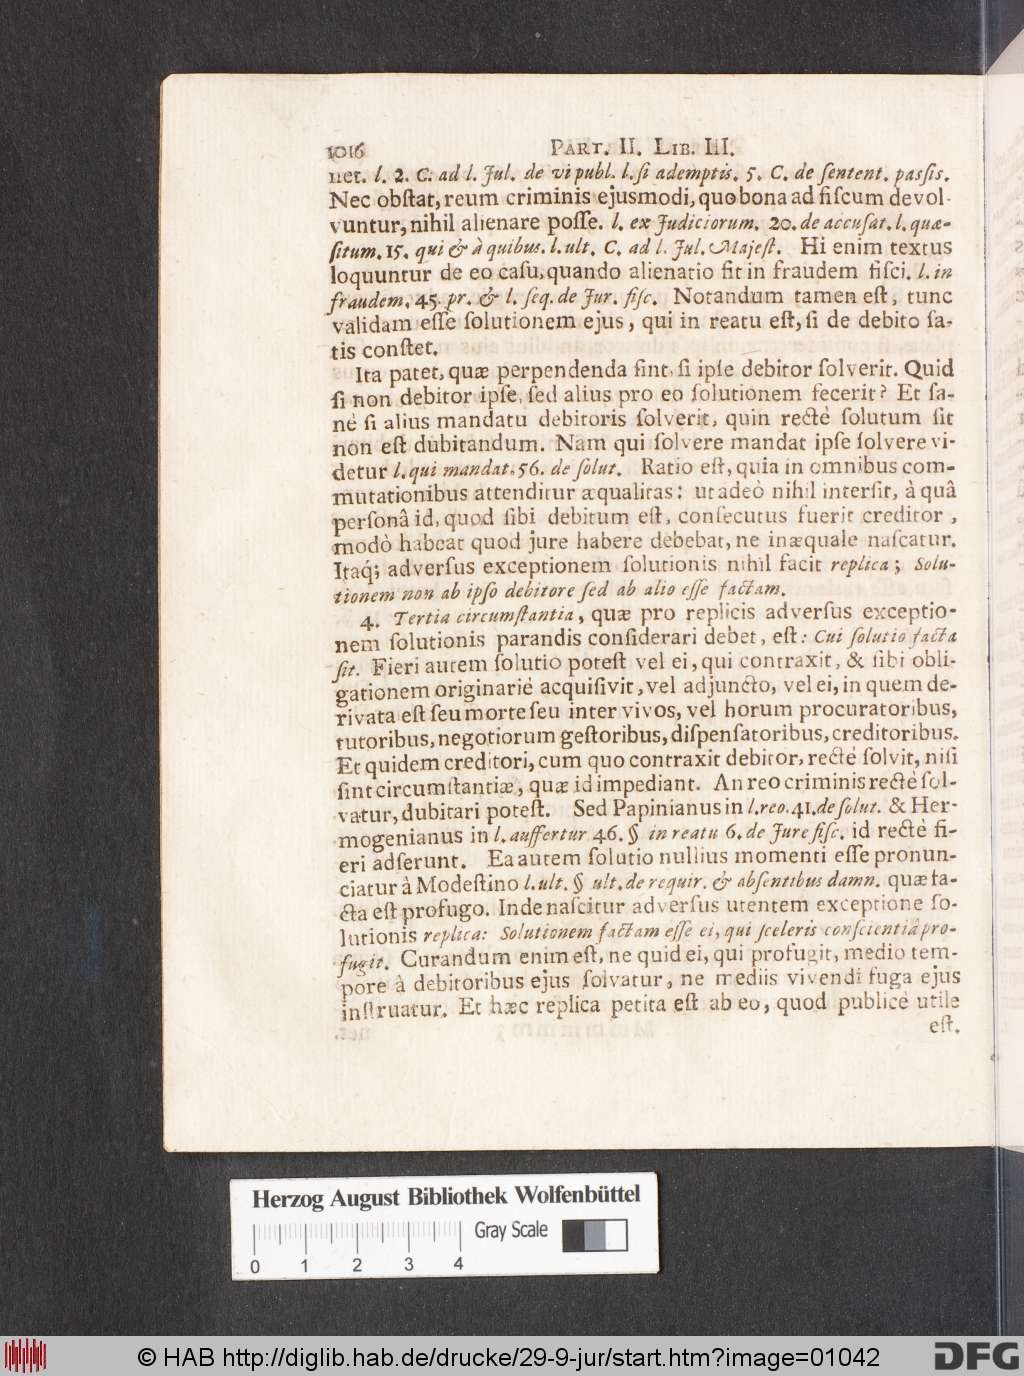 1016 PART. II. LIB. III.
net. l. 2. C. ad l. Jul. de vi publ. l. ſi ademptis. 5. C. de ſentent. paſſis.
Nec obſtat, reum criminis ejusmodi, quo bona ad fiſcum devol-
vuntur, nihil alienare poſſe. l. ex Judiciorum. 20. de accuſat. l. quæ-
ſitum. 15. qui & à quibus. l. ult. C. ad l. Jul. Majeſt. Hi enim textus
loquuntur de eo caſu, quando alienatio fit in fraudem fiſci. l. in
fraudem. 45. pr. & l. ſeq. de Jur. fiſc. Notandum tamen eſt, tunc
validam eſſe ſolutionem ejus, qui in reatu eſt, ſi de debito ſa-
tis conſtet.
Ita patet, quæ perpendenda ſint, ſi ipſe debitor ſolverit. Quid
ſi non debitor ipſe, ſed alius pro eo ſolutionem fecerit? Et ſa-
nè ſi alius mandatu debitoris ſolverit, quin rectè ſolutum ſit
non eſt dubitandum. Nam qui ſolvere mandat ipſe ſolvere vi-
detur l. qui mandat. 56. de ſolut. Ratio eſt, quia in omnibus com-
mutationibus attenditur æqualitas: ut adeò nihil interſit, à quâ
perſonâ id, quod ſibi debitum eſt, conſecutus fuerit creditor,
modò habeat quod jure habere debebat, ne inæquale naſcatur.
Itaq́; adverſus exceptionem ſolutionis nihil facit replica; Solu-
tionem non ab ipſo debitore ſed ab alio eſſe factam.
4. Tertia circumſtantia, quæ pro replicis adverſus exceptio-
nem ſolutionis parandis conſiderari debet, eſt: Cui ſolutio facta
ſit. Fieri autem ſolutio poteſt vel ei, qui contraxit, & ſibi obli-
gationem originariè acquiſivit, vel adjuncto, vel ei, in quem de-
rivata eſt ſeu morte ſeu inter vivos, vel horum procuratoribus,
tutoribus, negotiorum geſtoribus, diſpenſatoribus, creditoribus.
Et quidem creditori, cum quo contraxit debitor, rectè ſolvit, niſi
ſint circumſtantiæ, quæ id impediant. An reo criminis rectè ſol-
vatur, dubitari poteſt. Sed Papinianus in l. reo. 41. de ſolut. & Her-
mogenianus in l. auffertur 46. § in reatu 6. de Jure fiſc. id rectè fi-
eri adſerunt. Ea autem ſolutio nullius momenti eſſe pronun-
ciatur à Modeſtino l. ult. § ult. de requir. & abſentibus damn. quæ fa-
cta eſt profugo. Inde naſcitur adverſus utentem exceptione ſo-
lutionis replica: Solutionem factam eſſe ei, qui ſceleris conſcientiâ pro-
fugit. Curandum enim eſt, ne quid ei, qui profugit, medio tem-
pore à debitoribus ejus ſolvatur, ne mediis vivendi fuga ejus
inſtruatur. Et hæc replica petita eſt ab eo, quod publicè utile
eſt.
Herzog August Bibliothek Wolfenbüttel
Gray Scale
0 1 2 3 4
© HAB http://diglib.hab.de/drucke/29-9-jur/start.htm?image=01042
DFG